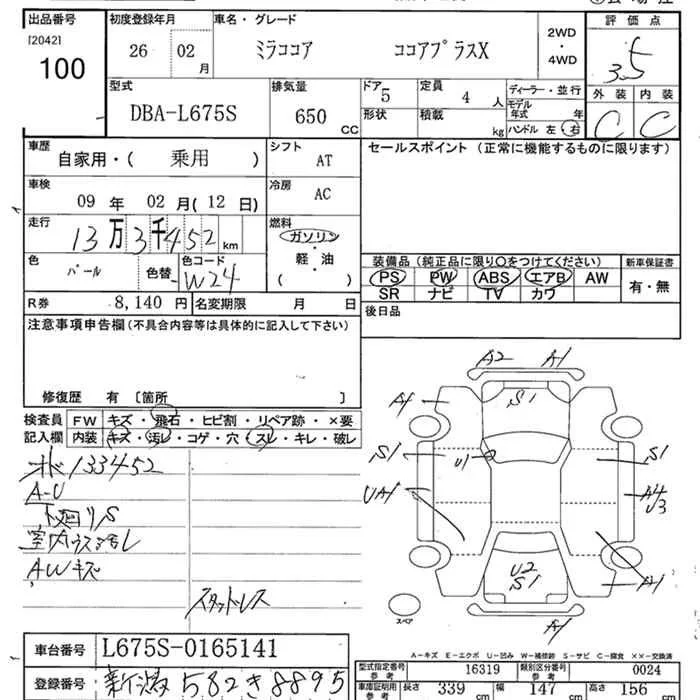 出品番号 初度登録年月 車名・グレード 評価点
[2042] 26 02月 ミラココア ココアプラスX 2WD・4WD 3.5
100
型式 排気量 ドア 定員 ディーラー・並行 外装 内装
DBA-L675S 650 CC 5 4人 モデル年式 年 C C
形状 積載 kg ハンドル 左・右
車歴 シフト セールスポイント(正常に機能するものに限ります)
自家用・(乗用) AT
車検 冷房
09年 02月(12日) AC
走行 燃料
13万3千452km ガソリン・軽・油
色 色替 色コード ( ) 装備品(純正品に限り○をつけてください) 新車保証書
パール W24 PS PW ABS エアB AW 有・無
SR ナビ TV カワ
R券 8,140円 名変期限 月 日 後日品
注意事項申告欄(不具合内容等は具体的に記入して下さい)
修復歴 有 [箇所 ]
検査員 FW キズ・飛石・ヒビ割・リペア跡・×要
記入欄 内装 キズ・汚レ・コゲ・穴・スレ・キレ・破レ
133452
A-U
下廻りS
AWキズ
スタッドレス
A2 A1
A1 S1
S1 U1 S1
UA1 A4 U3
U2 S1
A1
A1
スペア
A-キズ E-エクボ U-凹み W-補修跡 S-サビ C-腐食 XX-交換済
車台番号 L675S-0165141
登録番号 新潟 582き8895
型式指定番号 参考 16319 類別区分番号 参考 0024
車庫証明用 参考 長さ 339cm 幅 147cm 高さ 156cm